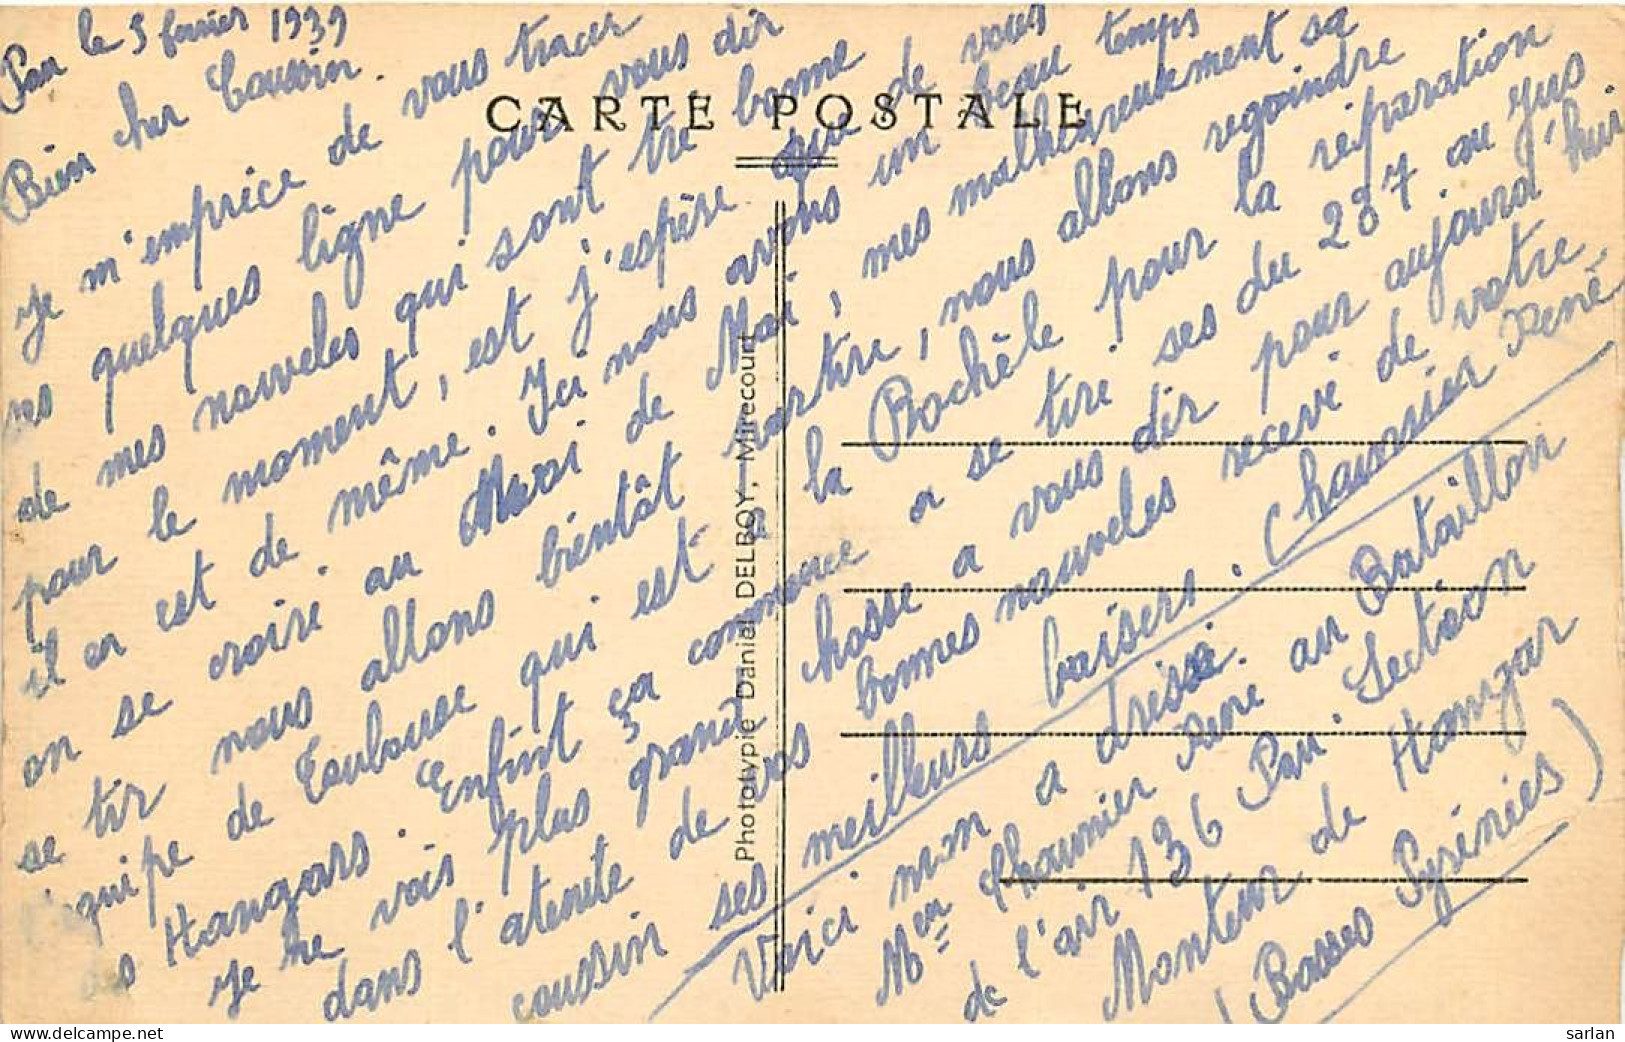 Pau le 5 fevrier 1939
Bien cher Coussin.
Je m'emprice de vous tracer
quelques ligne pour vous dir
de mes nouveles qui sont tré bonne
pour le moment, est j'espère que de vous
il en est de même. Ici nous avons un beau temps
on se croiré au Moi de Mai, mes malheureusement sa
se tir nous allons bientôt partire, nous allons regoindre
l'équipe de Toulouse qui est a la Rochêle pour la réparation
des Hangars. Enfint ça commence a se tiré ses du 237 au jus
Je ne vois plus grand chosse a vous dir pour aujourd'hui
dans l'atente de vos bonnes nouveles recevé de votre
coussin ses meilleurs baisers. Chaussier René
Voici mon a dresse.
Mr Chaumier René au Bataillon
de l'air 136 Pau. Section
Monteur de Hangar
(Basses Pyrénées)
CARTE POSTALE
Phototypie Daniel DELBOY, Mirecourt
sarlan